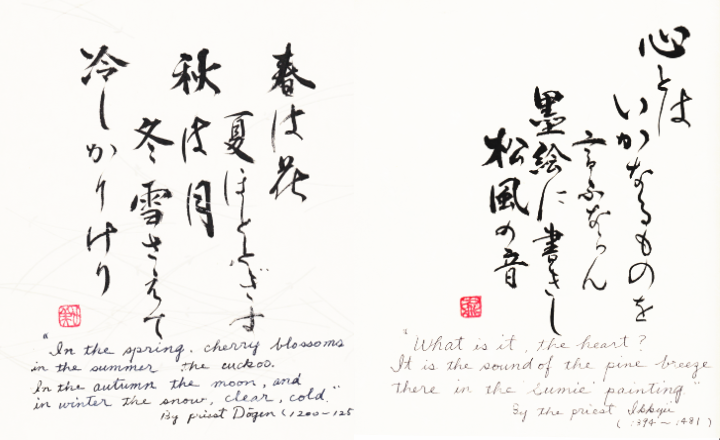 春は花
夏ほとゝぎす
秋は月
冬雪さえて
冷しかりけり
"In the spring, cherry blossoms
in the summer the cuckoo.
In the autumn the moon, and
in winter the snow, clear, cold."
By priest Dōgen (1200~125
心とは
いかなるものを
言ふならん
墨絵に書きし
松風の音
"What is it, the heart?
It is the sound of the pine breeze
there in the 'Sumie' painting"
By the priest Ikkyū
(1394~1481)